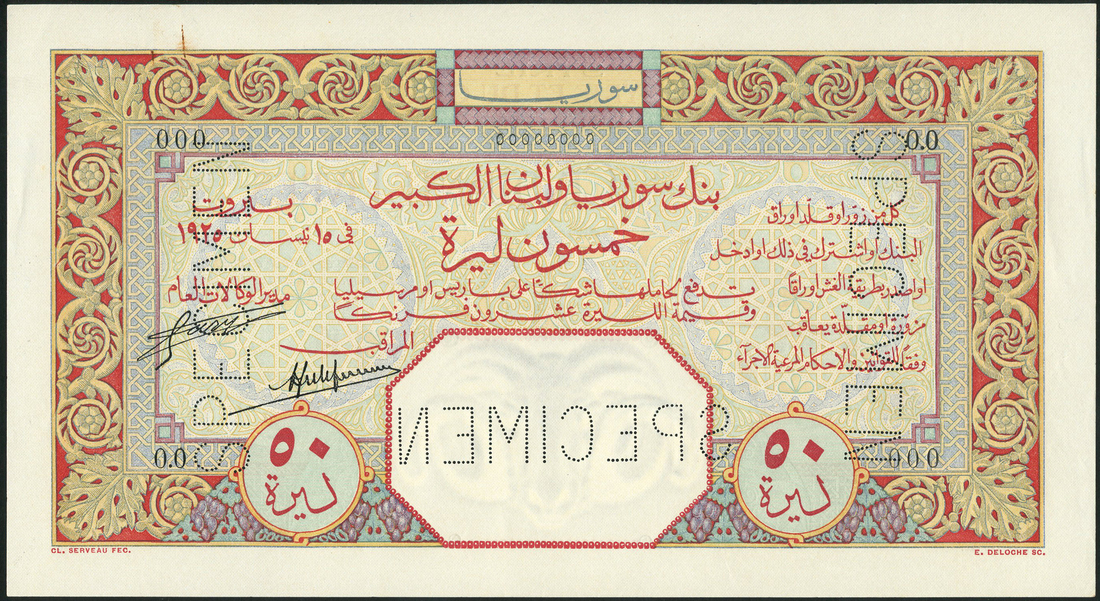 سوريا
000
00000000
00.0
بنك سوريا ولبنان الكبير
خمسون ليرة
بيروت
في ١٥ نيسان ١٩٢٥
كل من زوّر او قلّد اوراق
البنك او اشترك في ذلك او ادخل
او اصدر بطريقة الغش اوراقًا
مزورة او مقلّدة يعاقب
وفقًا للقوانين والاحكام المرعية الاجرآء
تدفع لحاملها شكًا على باريس او مرسيليا
وقيمة الليرة عشرون فرنكًا
مدير الوكالات العام
المراقب
SPECIMEN
SPECIMEN
SPECIMEN
00.0
000
٥٠
ليرة
٥٠
ليرة
CL. SERVEAU FEC.
E. DELOCHE SC.